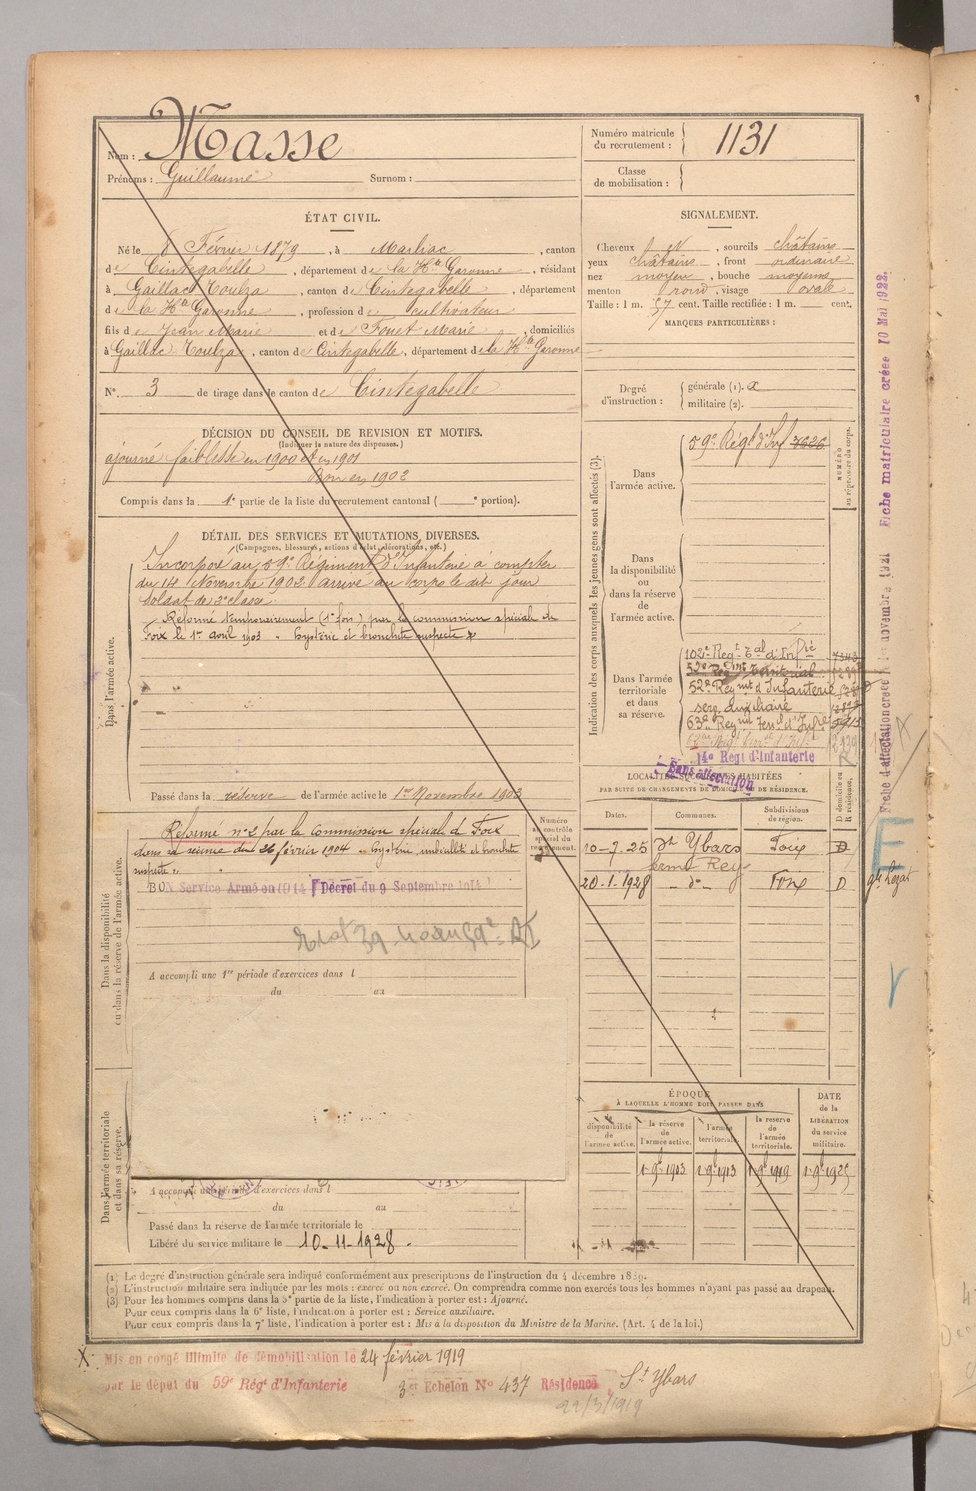 Nom : Masse
Prénoms : Guillaume Surnom :
Numéro matricule du recrutement : 1131
Classe de mobilisation :
ÉTAT CIVIL.
Né le 8 Février 1879, à Marliac, canton
de Cintegabelle, département de la Hte Garonne, résidant
à Gaillac Toulza, canton de Cintegabelle, département
de la Hte Garonne, profession de cultivateur
fils de Jean Marie et de Fouet Marie, domiciliés
à Gaillac Toulza, canton de Cintegabelle, département de la Hte Garonne
N° 3 de tirage dans le canton de Cintegabelle
SIGNALEMENT.
Cheveux , sourcils châtains
yeux châtains, front ordinaire
nez moyen, bouche moyenne
menton rond, visage ovale
Taille : 1 m. 57 cent. Taille rectifiée : 1 m. cent.
MARQUES PARTICULIÈRES :
Degré d'instruction : générale (1). a
militaire (2).
DÉCISION DU CONSEIL DE REVISION ET MOTIFS.
(Indiquer la nature des dispenses.)
ajourné faiblesse en 1900 et en 1901
Bon en 1902
Compris dans la 1e partie de la liste du recrutement cantonal ( e portion).
DÉTAIL DES SERVICES ET MUTATIONS DIVERSES.
(Campagnes, blessures, actions d'éclat, décorations, etc.)
Dans l'armée active.
Incorporé au 59e Régiment d'Infanterie à compter
du 14 Novembre 1902 arrivé au corps le dit jour
soldat de 2e classe.
Réformé temporairement (1e fois) par la commission spéciale de
Foix le 1er avril 1903 Hystérie et bronchite suspecte
Passé dans la réserve de l'armée active le 1er Novembre 1903
Dans la disponibilité ou dans la réserve de l'armée active.
Réformé n° 2 par la Commission spéciale de Foix
dans sa séance du 26 février 1904 Hystérie imbécillité et bronchite
suspecte
BON Service Armé en 1914 Décret du 9 Septembre 1914
A accompli une 1re période d'exercices dans l
du au
Dans l'armée territoriale et dans sa réserve.
A accompli une période d'exercices dans l
du au
Passé dans la réserve de l'armée territoriale le
Libéré du service militaire le 10-11-1928.
Numéro au contrôle spécial du recrutement.
Indication des corps auxquels les jeunes gens sont affectés (3).
NUMÉRO au répertoire du corps.
Dans l'armée active. 59e Régt d'Inf 3626
Dans la disponibilité ou dans la réserve de l'armée active.
Dans l'armée territoriale et dans sa réserve.
102e Regt Tal d'Infie
52e Regimt territorial
52e Regmt d'Infanterie
serv. auxiliaire
63e Regmt terral d'Infrie
14e Regt d'Infanterie
Sans affectation
LOCALITÉS SUCCESSIVES HABITÉES
PAR SUITE DE CHANGEMENTS DE DOMICILE OU DE RÉSIDENCE.
Dates. Communes. Subdivisions de région. D domicile ou R résidence.
10-7-25 St Ybars Foix D
ferme Rey
20-1-1928 - do - Foix D
ÉPOQUE
À LAQUELLE L'HOMME DOIT PASSER DANS
DATE de la LIBÉRATION du service militaire.
la disponibilité de l'armée active. la réserve de l'armée active. l'armée territoriale. la réserve de l'armée territoriale.
1 9bre 1903 1 9bre 1913 1 9bre 1919
(1) Le degré d'instruction générale sera indiqué conformément aux prescriptions de l'instruction du 4 décembre 1889.
(2) L'instruction militaire sera indiquée par les mots : exercé ou non exercé. On comprendra comme non exercés tous les hommes n'ayant pas passé au drapeau.
(3) Pour les hommes compris dans la 5e partie de la liste, l'indication à porter est : Ajourné.
Pour ceux compris dans la 6e liste, l'indication à porter est : Service auxiliaire.
Pour ceux compris dans la 7e liste, l'indication à porter est : Mis à la disposition du Ministre de la Marine. (Art. 4 de la loi.)
X Mis en congé illimité de démobilisation le 24 février 1919
par le dépôt du 59e Régt d'Infanterie 3me Echelon No 437 Résidence St Ybars
22/3/1919
Fiche d'affectation créée le 1er novembre 1921 Fiche matriculaire créée 10 Mai 1922.
E